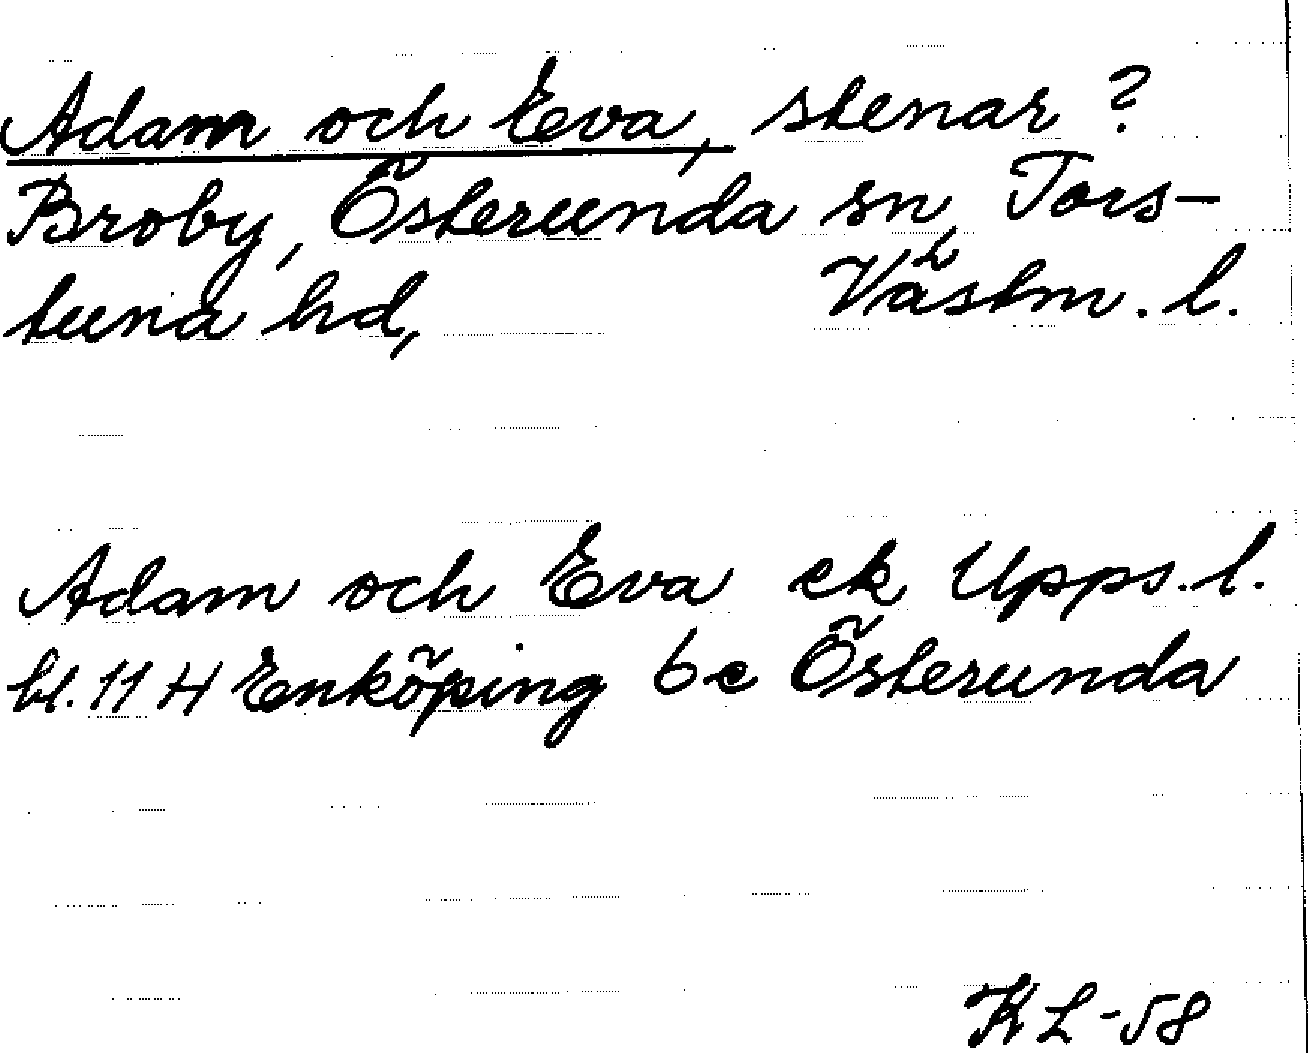 Adam och Eva, stenar?
Broby, Österunda sn, Tors-
tuna hd, Västm. l.
Adam och Eva ek Upps. l.
bl. 11 H Enköping 6e Österunda
KL-58